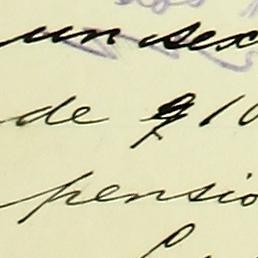 un sex
de $ 10
pensio